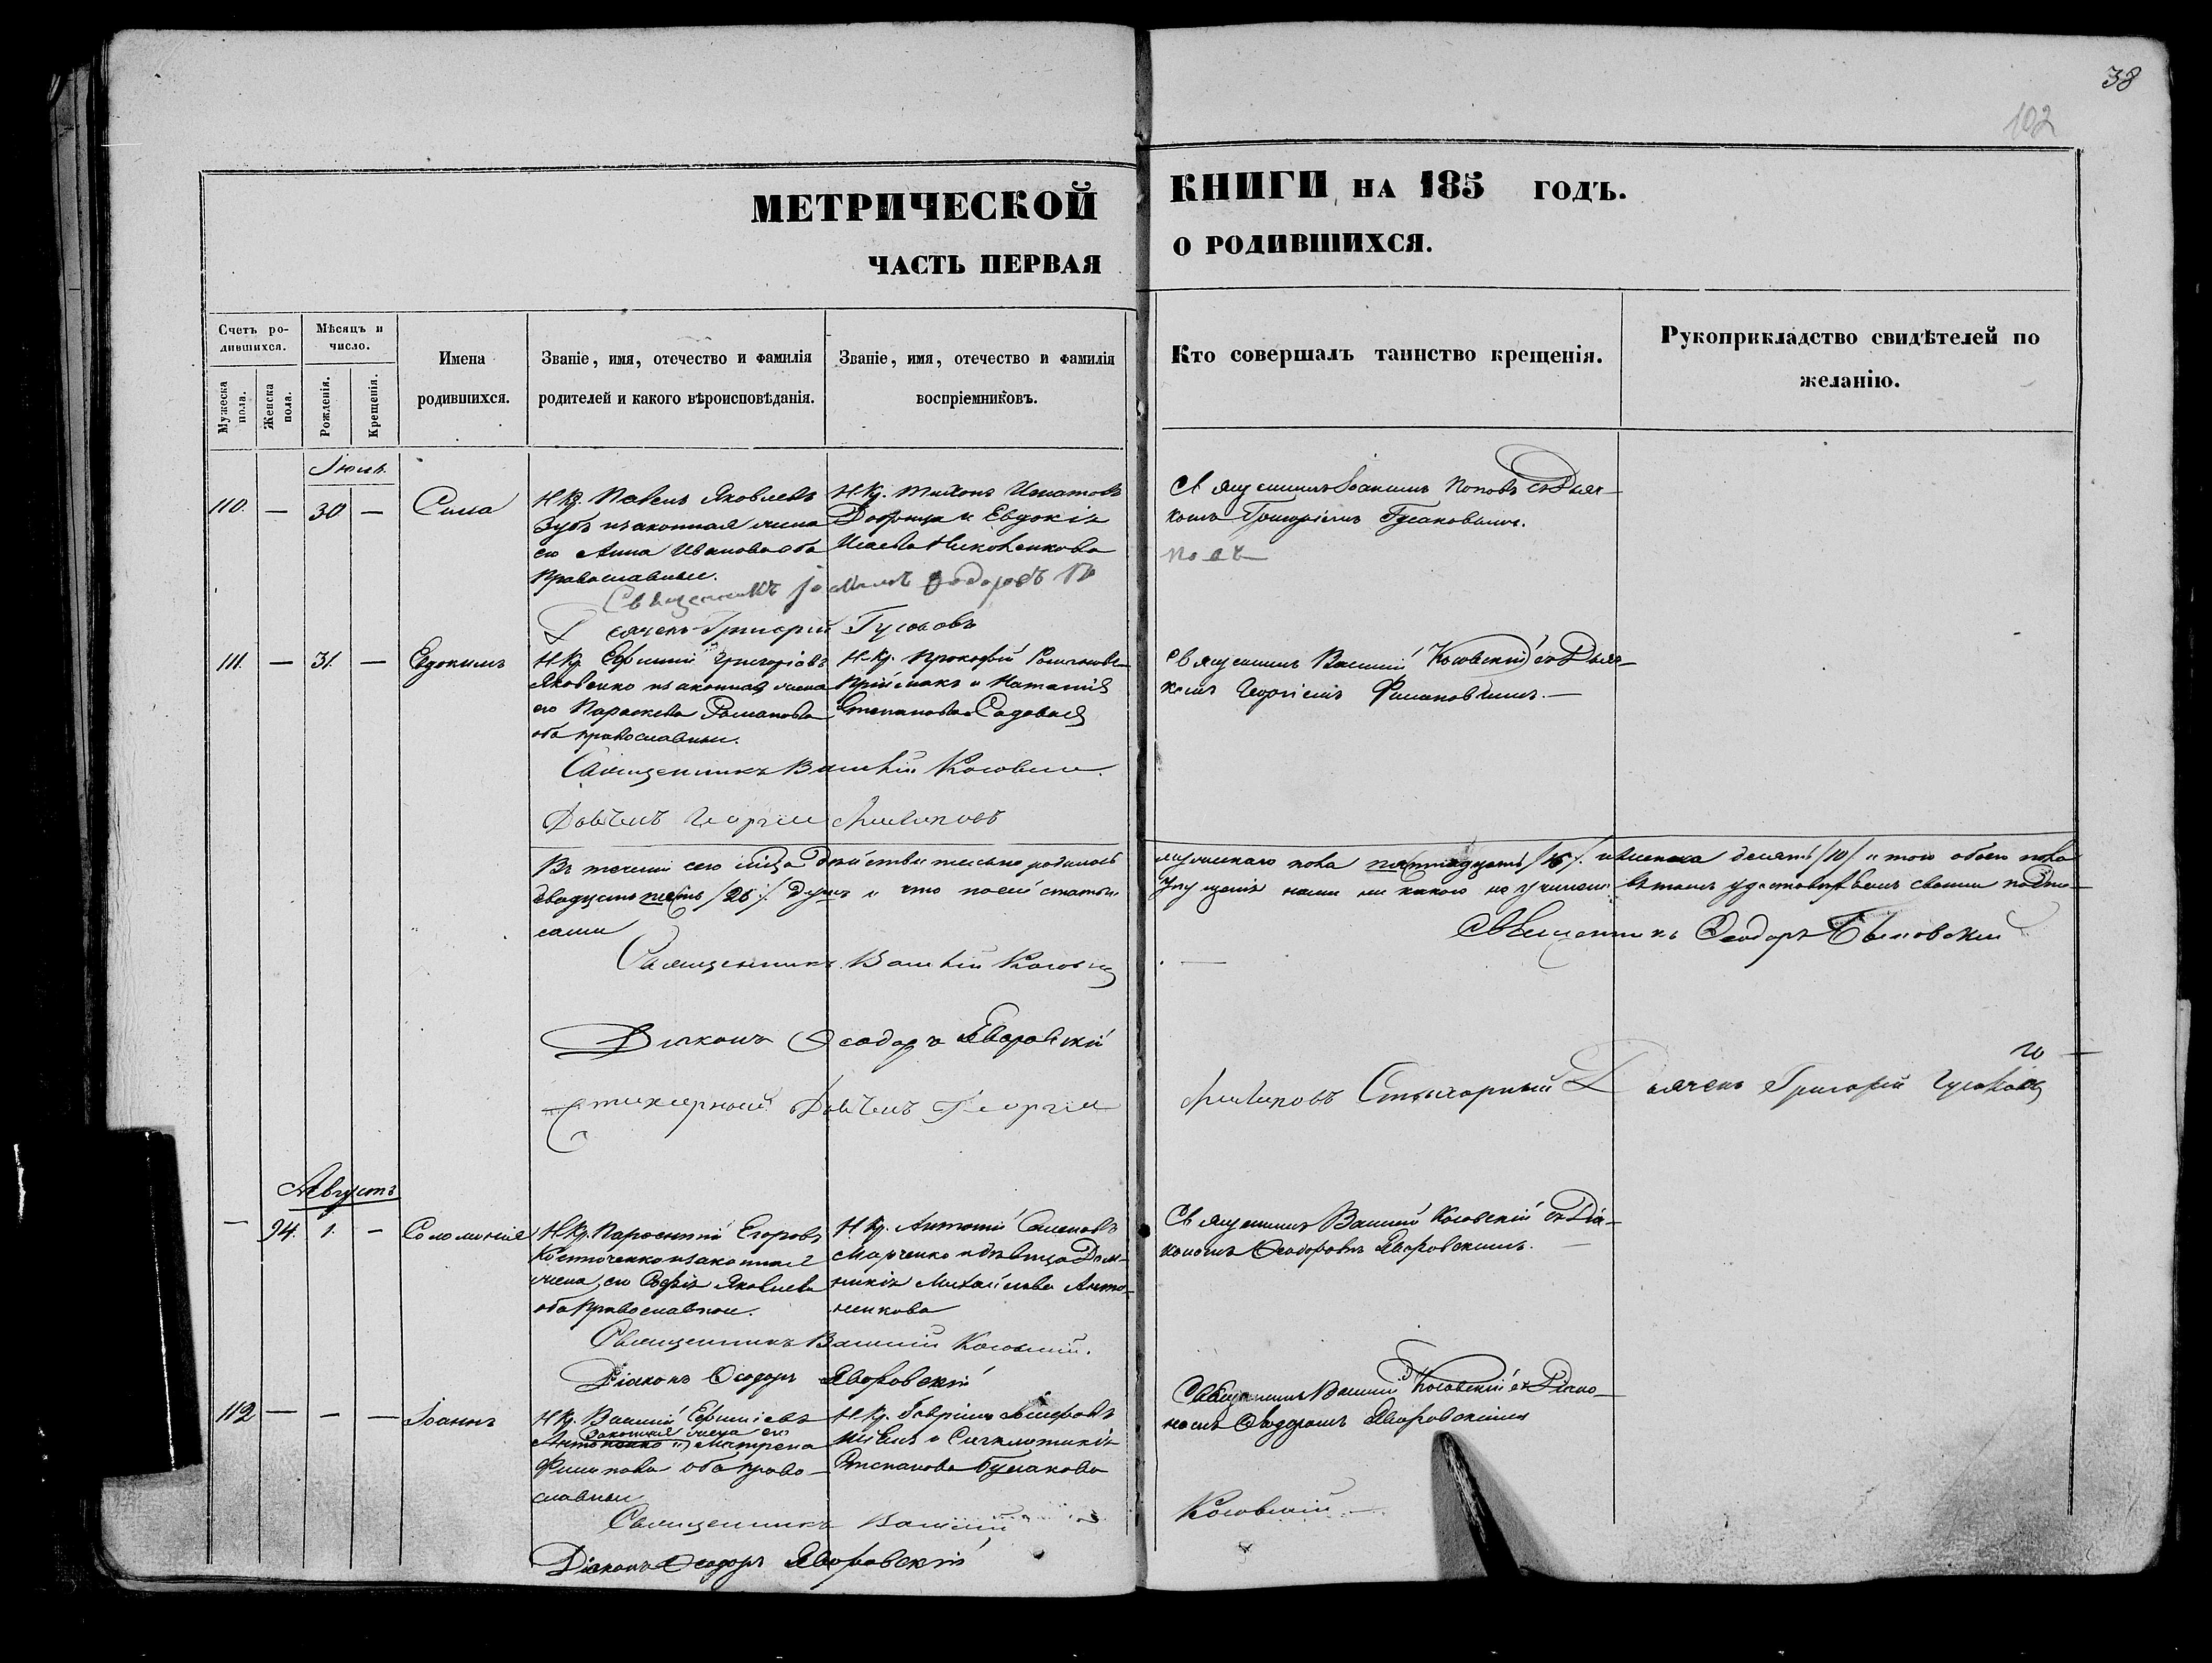 38
102
МЕТРИЧЕСКОЙ КНИГИ НА 185 ГОДЪ.
ЧАСТЬ ПЕРВАЯ О РОДИВШИХСЯ.
Счетъ ро-
дившихся.
Мужеска пола.
Женска пола.
Мѣсяцъ и
число.
Рожденія.
Крещенія.
Имена
родившихся.
Званіе, имя, отечество и фамилія
родителей и какого вѣроисповѣданія.
Званіе, имя, отечество и фамилія
воспріемниковъ.
Кто совершалъ таинство крещенія.
Рукоприкладство свидѣтелей по
желанію.
Іюль
110. — 30 — Сила
Н. Кр. Павелъ Яковлевъ
Зубъ и законная жена
его Анна Иванова оба
православные.
Н. Кр. Тихонъ Игнатовъ
и Евдокія
Исаева
Священникъ Іоакимъ Поповъ съ Дьяч-
комъ Григоріемъ Гусаковымъ.
Священникъ Іоакимъ
Дьячекъ Григорій Гусаковъ
111. — 31. — Евдокимъ
Н. Кр. Ефимій Григоріевъ
Яковенко и законная жена
его Параскева Романова
оба православные.
Н. Кр. Прокофій
Пріймакъ и Наталія
Степанова Садовая
Священникъ Василій Косовскій съ Дьяч-
комъ Георгіемъ
Священникъ Василій Косовскій
Дьячекъ Георгій
Въ теченіи сего мѣсяца дѣйствительно родилось
двадцать пять /25/. душъ и что по сей статьи
мужескаго пола пятнадцать /15/. и женска десять /10/. и того обоего пола
упущенія нами ни какого не учинено въ томъ удостовѣряемъ своими подпи-
сами
Священникъ Ѳеодоръ
Священникъ Василій Косовскій
Діаконъ Ѳеодоръ Яворовскій
Стихарный Дьячекъ Георгій
Стихарный Дьячекъ Григорій Гусаковъ
Августъ
— 94. 1. — Соломонія
Н. Кр. Парфентій Егоровъ
Костюченко и законная
жена его Софія Яковлева
оба православные.
Н. Кр. Антоній Семеновъ
Марченко и дѣвица Дом-
никія Михайлова Анто-
ненкова
Священникъ Василій Косовскій съ Діа-
кономъ Ѳеодоромъ Яворовскимъ.
Священникъ Василій Косовскій.
Діаконъ Ѳеодоръ Яворовскій
112 — — — Іоаннъ
Н. Кр. Василій Ефиміевъ
законная жена его
Антоненко и Матрена
Филипова оба право-
славные
Н. Кр. Гавріилъ
Степанова Бузакова
Священникъ Василій Косовскій съ Діако-
номъ Ѳеодоромъ Яворовскимъ
Священникъ Василій Косовскій
Діаконъ Ѳеодоръ Яворовскій